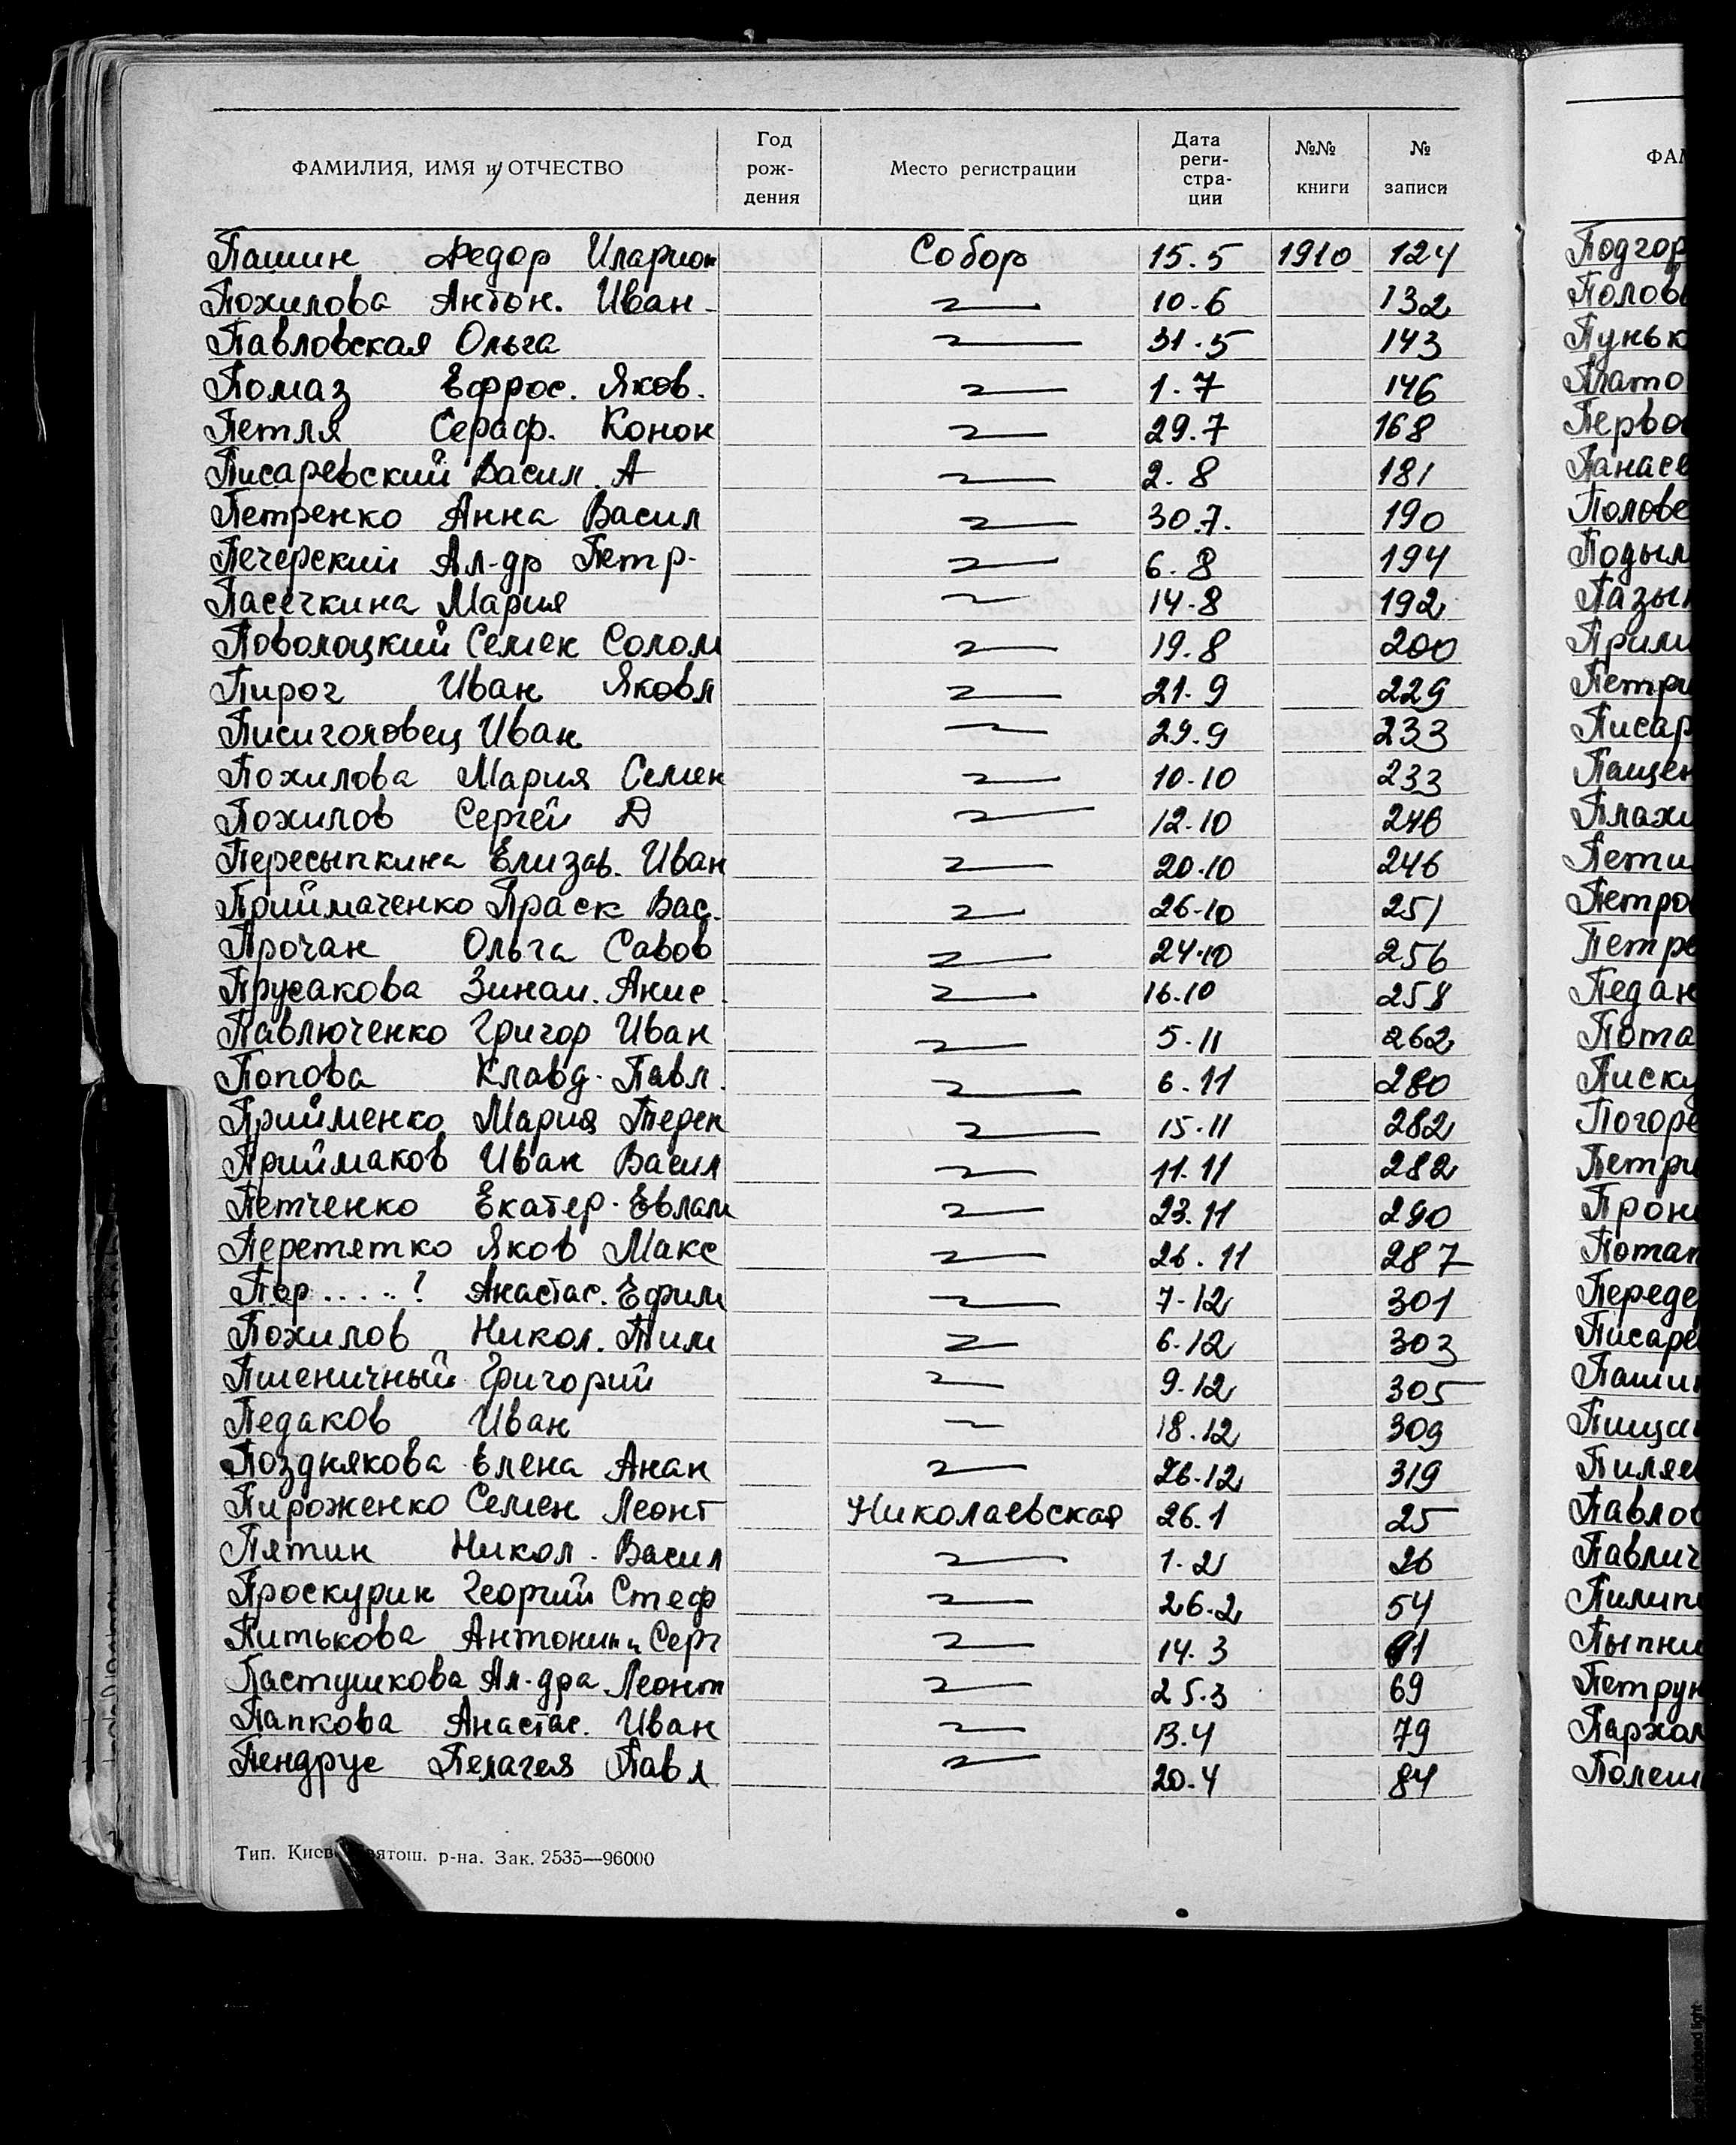 ФАМИЛИЯ, ИМЯ и ОТЧЕСТВО Год рож- дения Место регистрации Дата реги- стра- ции №№ книги № записи
Пашин Федор Иларион Собор 15.5 1910 124
Похилова Антон. Иван - 10-6 132
Павловская Ольга 31-5 143
Помаз Ефрос. Яков. 1-7 146
Петля Сераф. Конон 29.7 168
Писаревский Васил. А 2.8 181
Петренко Анна Васил 30.7. 190
Печерский Ал-др Петр- 6.8 194
Пасечкина Мария 14-8 192
Поволоцкий Семен Солом 19.8 200
Пирог Иван Яковл 21.9 229
Писиголовец Иван 29.9 233
Похилова Мария Семен 10-10 233
Похилов Сергей Д 12.10 246
Пересыпкина Елизав. Иван 20.10 246
Приймаченко Праск Вас. 26-10 251
Прочан Ольга Савов 24-10 256
Прусакова Зинаи. Анис. 16.10 258
Павлюченко Григор Иван 5-11 262
Попова Клавд. Павл. 6.11 280
Прийменко Мария Терен 15-11 282
Приймаков Иван Васил 11.11 282
Петченко Екатер. Евлам 23.11 290
Перетятко Яков Макс 26.11 287
Пер.....? Анастас. Ефим 7-12 301
Похилов Никол. Тим 6.12 303
Пшеничный Григорий 9-12 305
Педаков Иван 18.12 309
Позднякова Елена Анан 26-12 319
Пироженко Семен Леонт Николаевская 26.1 25
Пятин Никол. Васил 1-2 26
Проскурин Георгий Стеф 26.2 54
Питькова Антонина Серг 14.3 61
Пастушкова Ал-дра Леонт 25.3 69
Папкова Анастас. Иван 13.4 79
Пендрус Пелагея Павл 20.4 84
Тип. Киев р-на. Зак. 2535—96000
ФАМ
Подгор
Полов
Пунь
Плато
Перво
Панасе
Полове
Подым
Пазы
Прим
Петри
Писар
Пащен
Плахи
Пети
Петро
Петре
Педан
Пота
Писку
Погоре
Петри
Прон
Потап
Переде
Писаре
Пашин
Пища
Пиляе
Павлов
Павлич
Пилип
Пыпни
Петрун
Пархом
Полеш